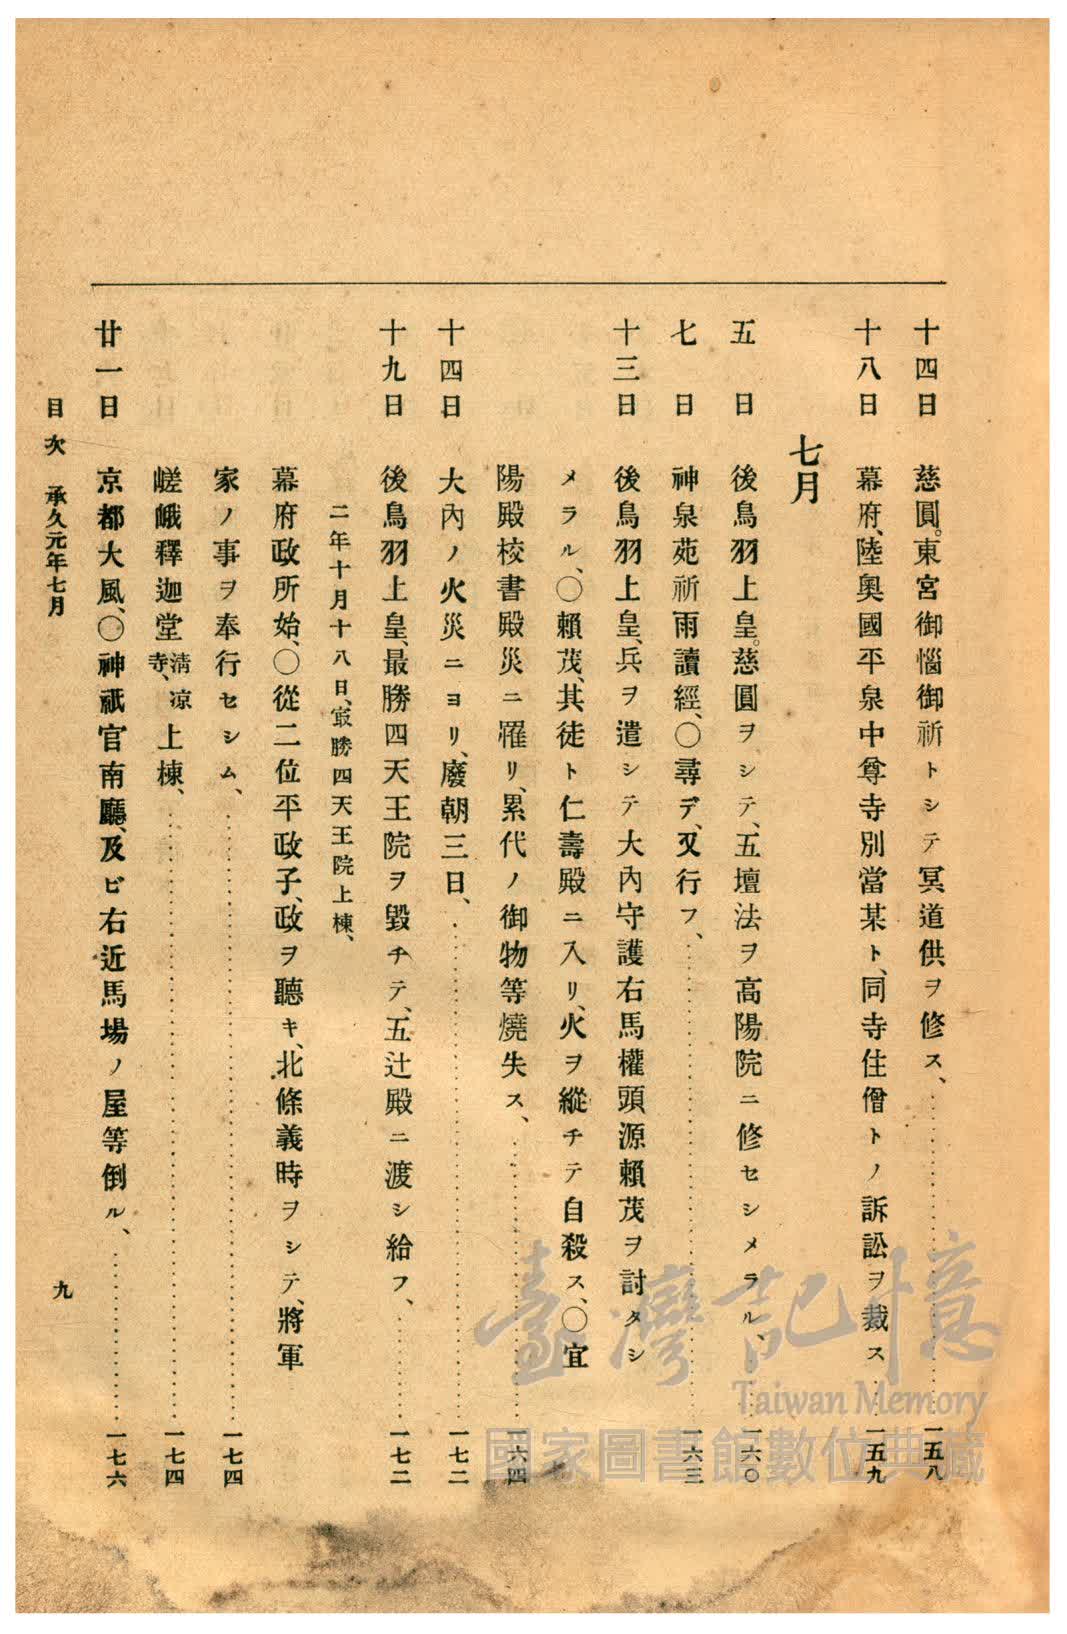 十四日　慈圓。東宮御惱御祈トシテ冥道供ヲ修ス、…………一五八
十八日　幕府、陸奧國平泉中尊寺別當某ト、同寺住僧トノ訴訟ヲ裁ス…一五九
七月
五日　後鳥羽上皇。慈圓ヲシテ、五壇法ヲ高陽院ニ修セシメラル、…一六〇
七日　神泉苑祈雨讀經、〇尋デ、又行フ、…………一六三
十三日　後鳥羽上皇、兵ヲ遣シテ大內守護右馬權頭源賴茂ヲ討タシ
メラル、〇賴茂、其徒ト仁壽殿ニ入リ、火ヲ縱チテ自殺ス、〇宜
陽殿校書殿災ニ罹リ、累代ノ御物等燒失ス、…………一六四
十四日　大內ノ火災ニヨリ、廢朝三日、…………一七二
十九日　後鳥羽上皇、最勝四天王院ヲ毀チテ、五辻殿ニ渡シ給フ、…………一七二
二年十月十八日、㝡勝四天王院上棟、
幕府政所始、〇從二位平政子、政ヲ聽キ、北條義時ヲシテ、將軍
家ノ事ヲ奉行セシム、…………一七四
嵯峨釋迦堂淸凉寺、上棟、…………一七四
廿一日　京都大風、〇神祇官南廳、及ビ右近馬場ノ屋等倒ル、…………一七六
目次　承久元年七月　九
臺灣記憶
Taiwan Memory
國家圖書館數位典藏